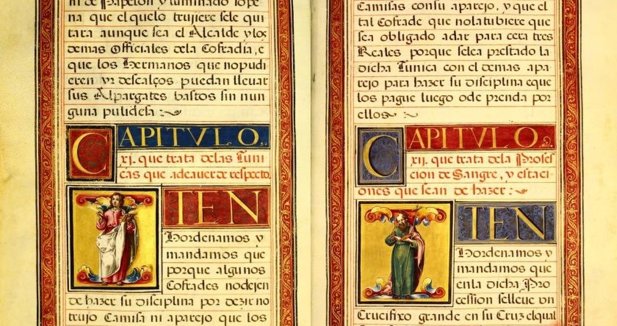 ni de Papelon y luminado sope
na que el quelo trujiere sele qui
tara aunque sea el Alcalde y los
demas Officiales dela Cofradia, e
que los Hermanos que nopudi
eren yr descalços puedan lleuar
sus Alpargates bastos sin nin
guna pulideça:
CAPITVLO.
xj. que trata delas Tuni
cas que adeauer de respecto,
ITEN
Hordenamos y
mandamos que
porque algunos
Cofrades nodejen
de hazer su disciplina por dezir no
trujo Camisa ni aparejo que los
Camisas consu aparejo, y que el
tal Cofrade que nola tubiere que
sea obligado adar para cera tres
Reales porque sele a prestado la
dicha Tunica con el demas apa
rejo para hazer su disciplina e que
los pague luego o de prenda por
ellos:
CAPITVLO.
xij. que trata dela Proses
cion de Sangre, y estaci
ones que sean de hazer:
ITEN
Hordenamos y
mandamos que
enla dicha Pro
cession selleue vn
Crucifixo grande en su Cruz elqual